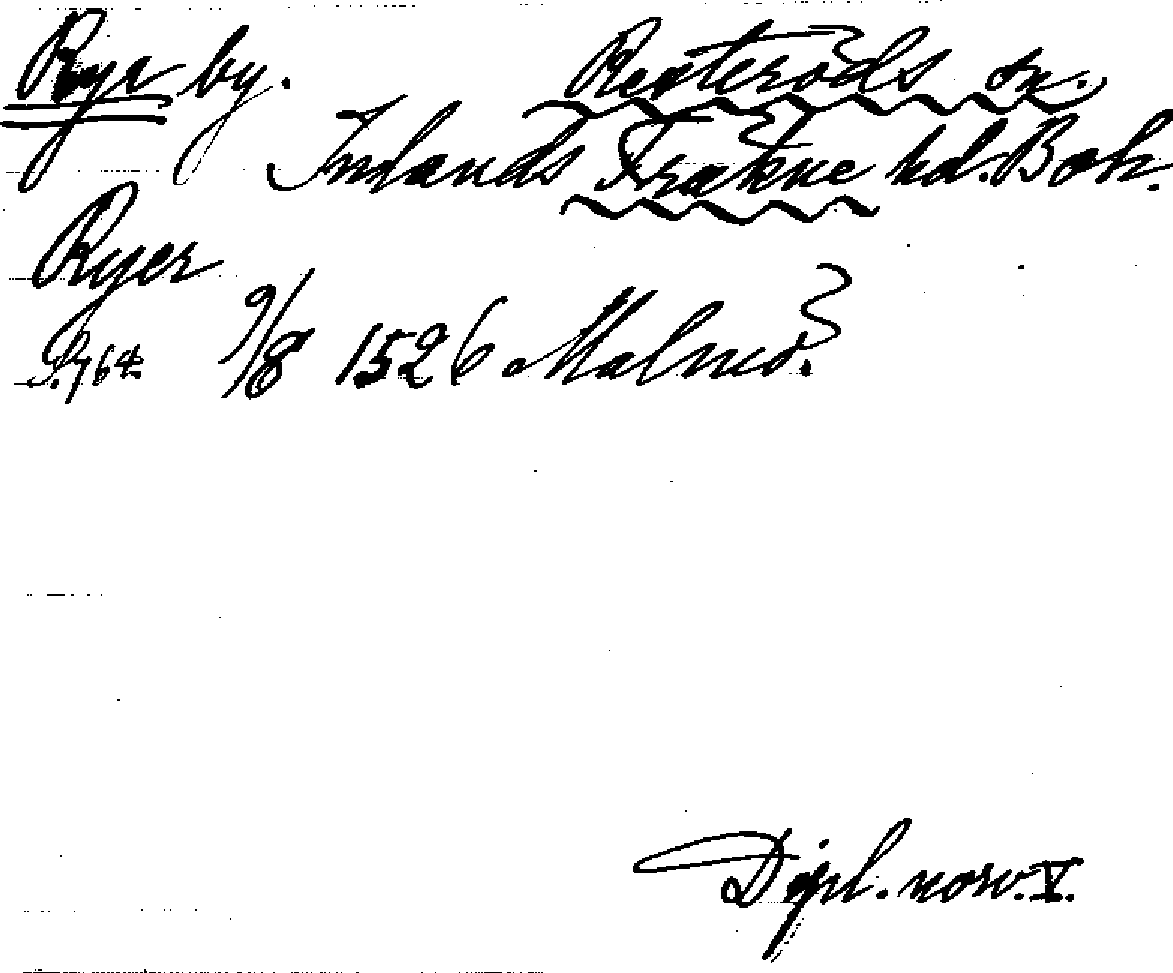 Ryr by. Resteröds sn.
Inlands Fräkne hd. Boh.
Ryer
S. 764 9/8 1526 Malmö.
Dipl. norv. V.